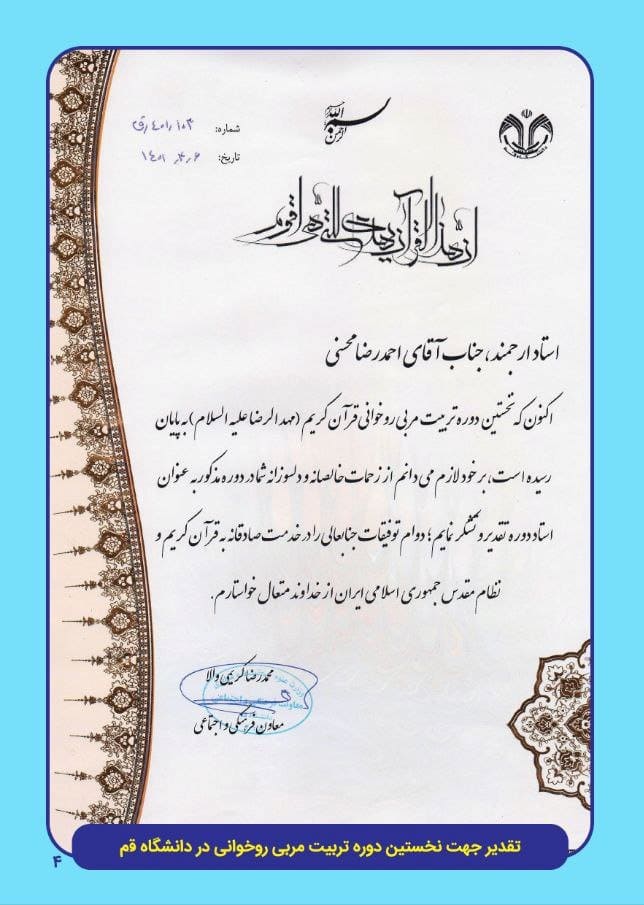 بسم الله الرحمن الرحیم
شماره: ۴۰۱/۱۰۳/ق
تاریخ: ۱۴۰۱/۰۴/۰۶
ان هذا القرآن یهدی للتی هی اقوم
استاد ارجمند، جناب آقای احمدرضا محسنی
اکنون که نخستین دوره تربیت مربی روخوانی قرآن کریم (مهد الرضا علیه السلام) به پایان
رسیده است، بر خود لازم می دانم از زحمات خالصانه و دلسوزانه شما در دوره مذکور به عنوان
استاد دوره تقدیر و تشکر نمایم؛ دوام توفیقات جنابعالی را در خدمت صادقانه به قرآن کریم و
نظام مقدس جمهوری اسلامی ایران از خداوند متعال خواستارم.
محمدرضا کریمی والا
معاون فرهنگی و اجتماعی
تقدیر جهت نخستین دوره تربیت مربی روخوانی در دانشگاه قم
۴